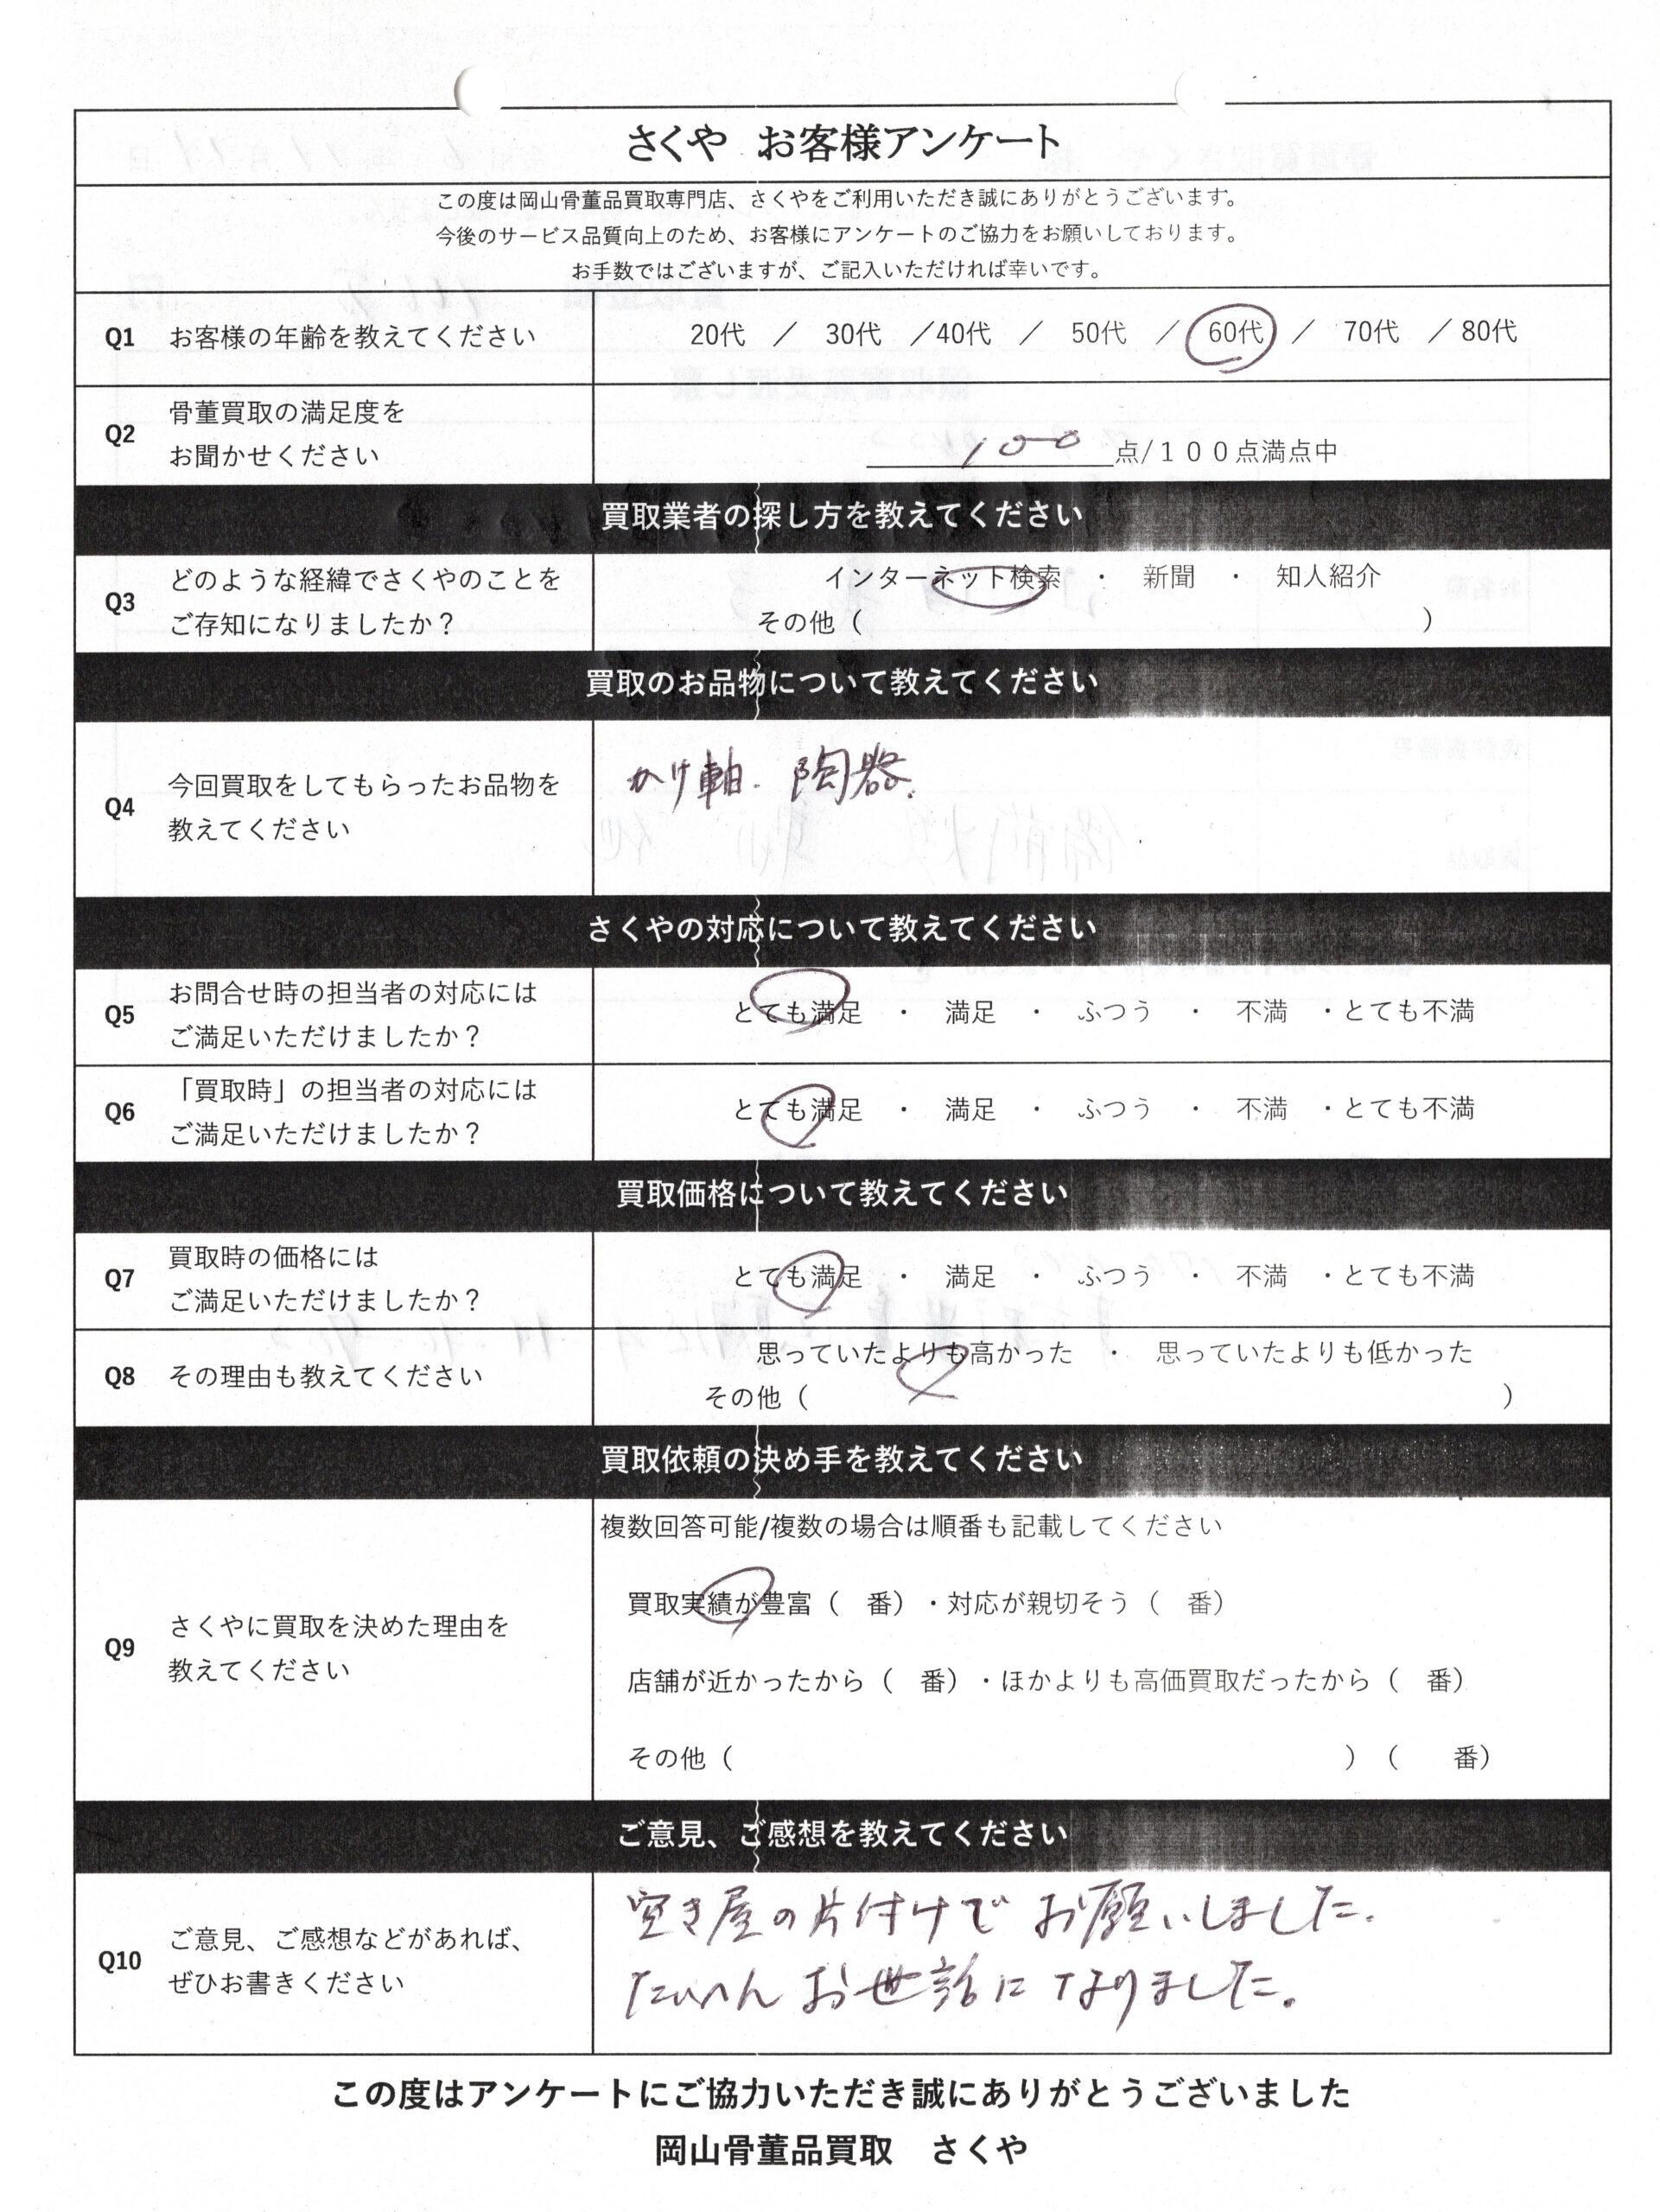 さくや お客様アンケート
この度は岡山骨董品買取専門店、さくやをご利用いただき誠にありがとうございます。
今後のサービス品質向上のため、お客様にアンケートのご協力をお願いしております。
お手数ではございますが、ご記入いただければ幸いです。
Q1 お客様の年齢を教えてください 20代 / 30代 /40代 / 50代 / 60代 / 70代 / 80代
Q2 骨董買取の満足度を
お聞かせください
100 点/100点満点中
買取業者の探し方を教えてください
Q3 どのような経緯でさくやのことを
ご存知になりましたか？
インターネット検索 ・ 新聞 ・ 知人紹介
その他（ ）
買取のお品物について教えてください
Q4 今回買取をしてもらったお品物を
教えてください
かけ軸. 陶器.
さくやの対応について教えてください
Q5 お問合せ時の担当者の対応には
ご満足いただけましたか？
とても満足 ・ 満足 ・ ふつう ・ 不満 ・とても不満
Q6 「買取時」の担当者の対応には
ご満足いただけましたか？
とても満足 ・ 満足 ・ ふつう ・ 不満 ・とても不満
買取価格について教えてください
Q7 買取時の価格には
ご満足いただけましたか？
とても満足 ・ 満足 ・ ふつう ・ 不満 ・とても不満
Q8 その理由も教えてください
思っていたよりも高かった ・ 思っていたよりも低かった
その他（ ）
買取依頼の決め手を教えてください
Q9 さくやに買取を決めた理由を
教えてください
複数回答可能/複数の場合は順番も記載してください
買取実績が豊富（ 番）・対応が親切そう（ 番）
店舗が近かったから（ 番）・ほかよりも高価買取だったから（ 番）
その他（ ）（ 番）
ご意見、ご感想を教えてください
Q10 ご意見、ご感想などがあれば、
ぜひお書きください
空き屋の片付けで お願いしました.
たいへん お世話に なりました。
この度はアンケートにご協力いただき誠にありがとうございました
岡山骨董品買取 さくや